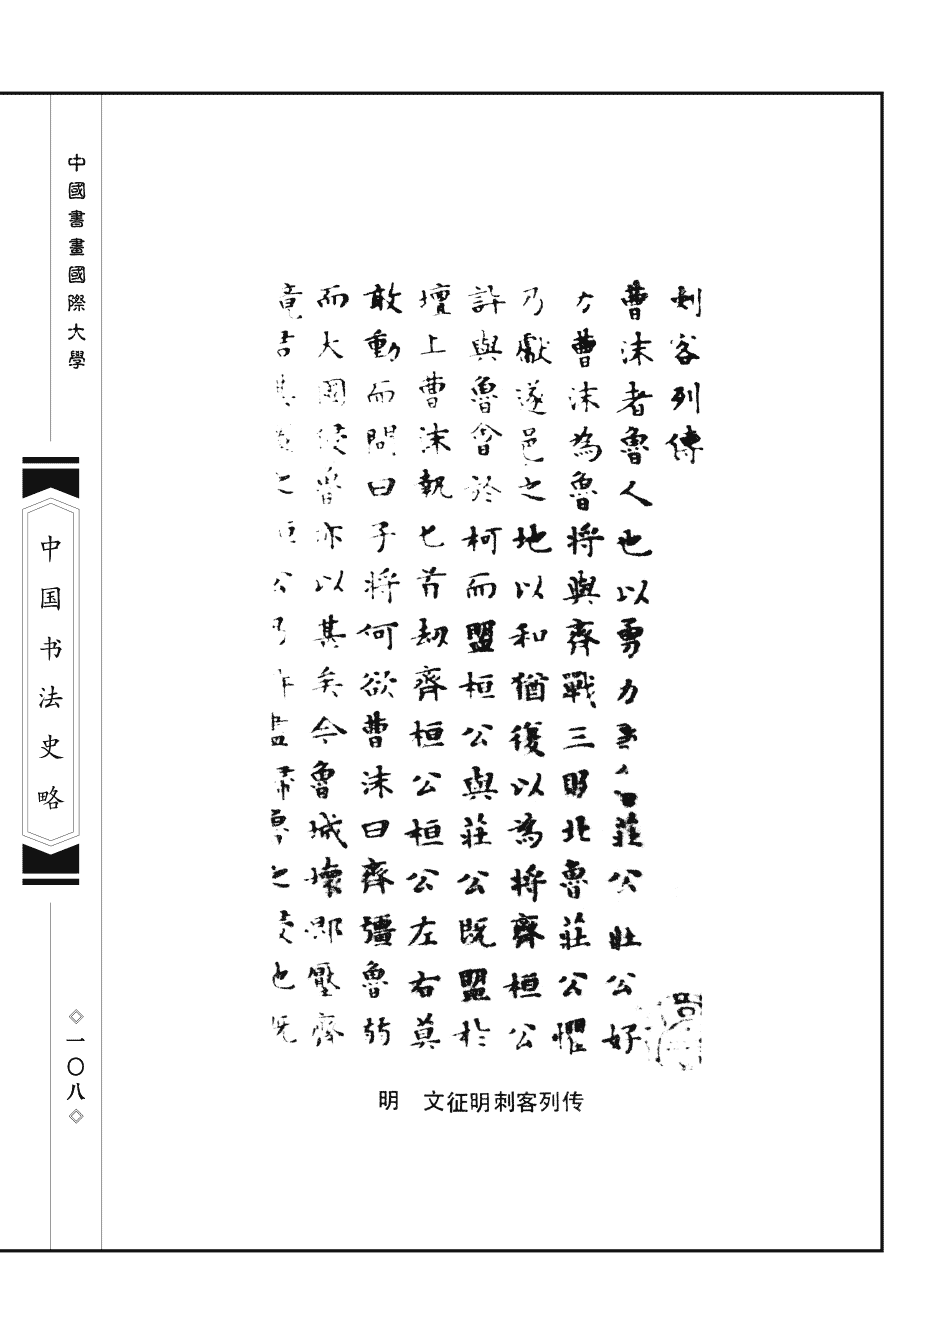 中國書畫國際大學
中国书法史略
一〇八
刺客列傳
曹沫者魯人也以勇力莊公壯公好
力曹沫為魯將與齊戰三敗北魯莊公懼
乃獻遂邑之地以和猶復以為將齊桓公
許與魯會於柯而盟桓公與莊公既盟於
壇上曹沫執匕首劫齊桓公桓公左右莫
敢動而問曰子將何欲曹沫曰齊彊魯弱
而大國侵魯亦以其矣今魯城壞即壓齊
竟君其之公乃盡歸魯之侵地既
明 文征明刺客列传